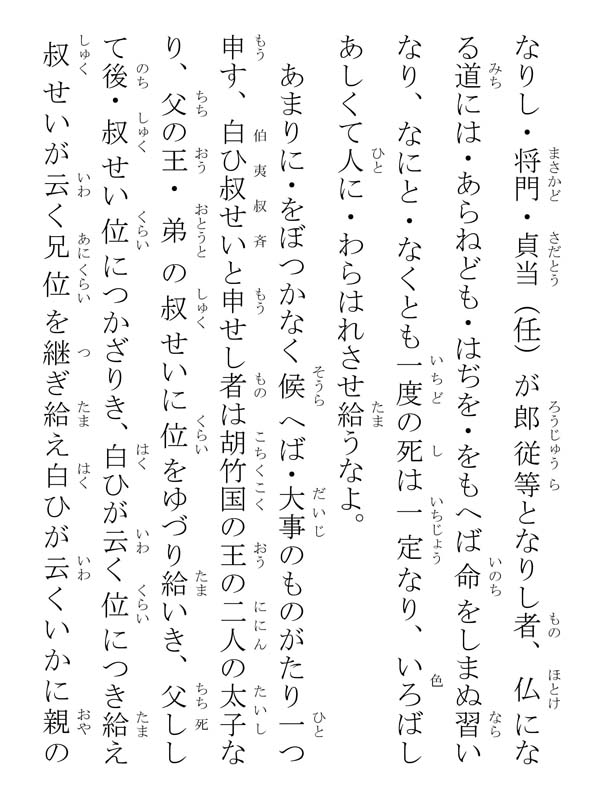 なりし・将門・貞当（任）が郎従等となりし者、仏にな
る道には・あらねども・はぢを・をもへば命をしまぬ習い
なり、なにと・なくとも一度の死は一定なり、いろばし
あしくて人に・わらはれさせ給うなよ。
あまりに・をぼつかなく候へば・大事のものがたり一つ
申す、白ひ叔せいと申せし者は胡竹国の王の二人の太子な
り、父の王・弟の叔せいに位をゆづり給いき、父しし
て後・叔せい位につかざりき、白ひが云く位につき給え
叔せいが云く兄位を継ぎ給え白ひが云くいかに親の